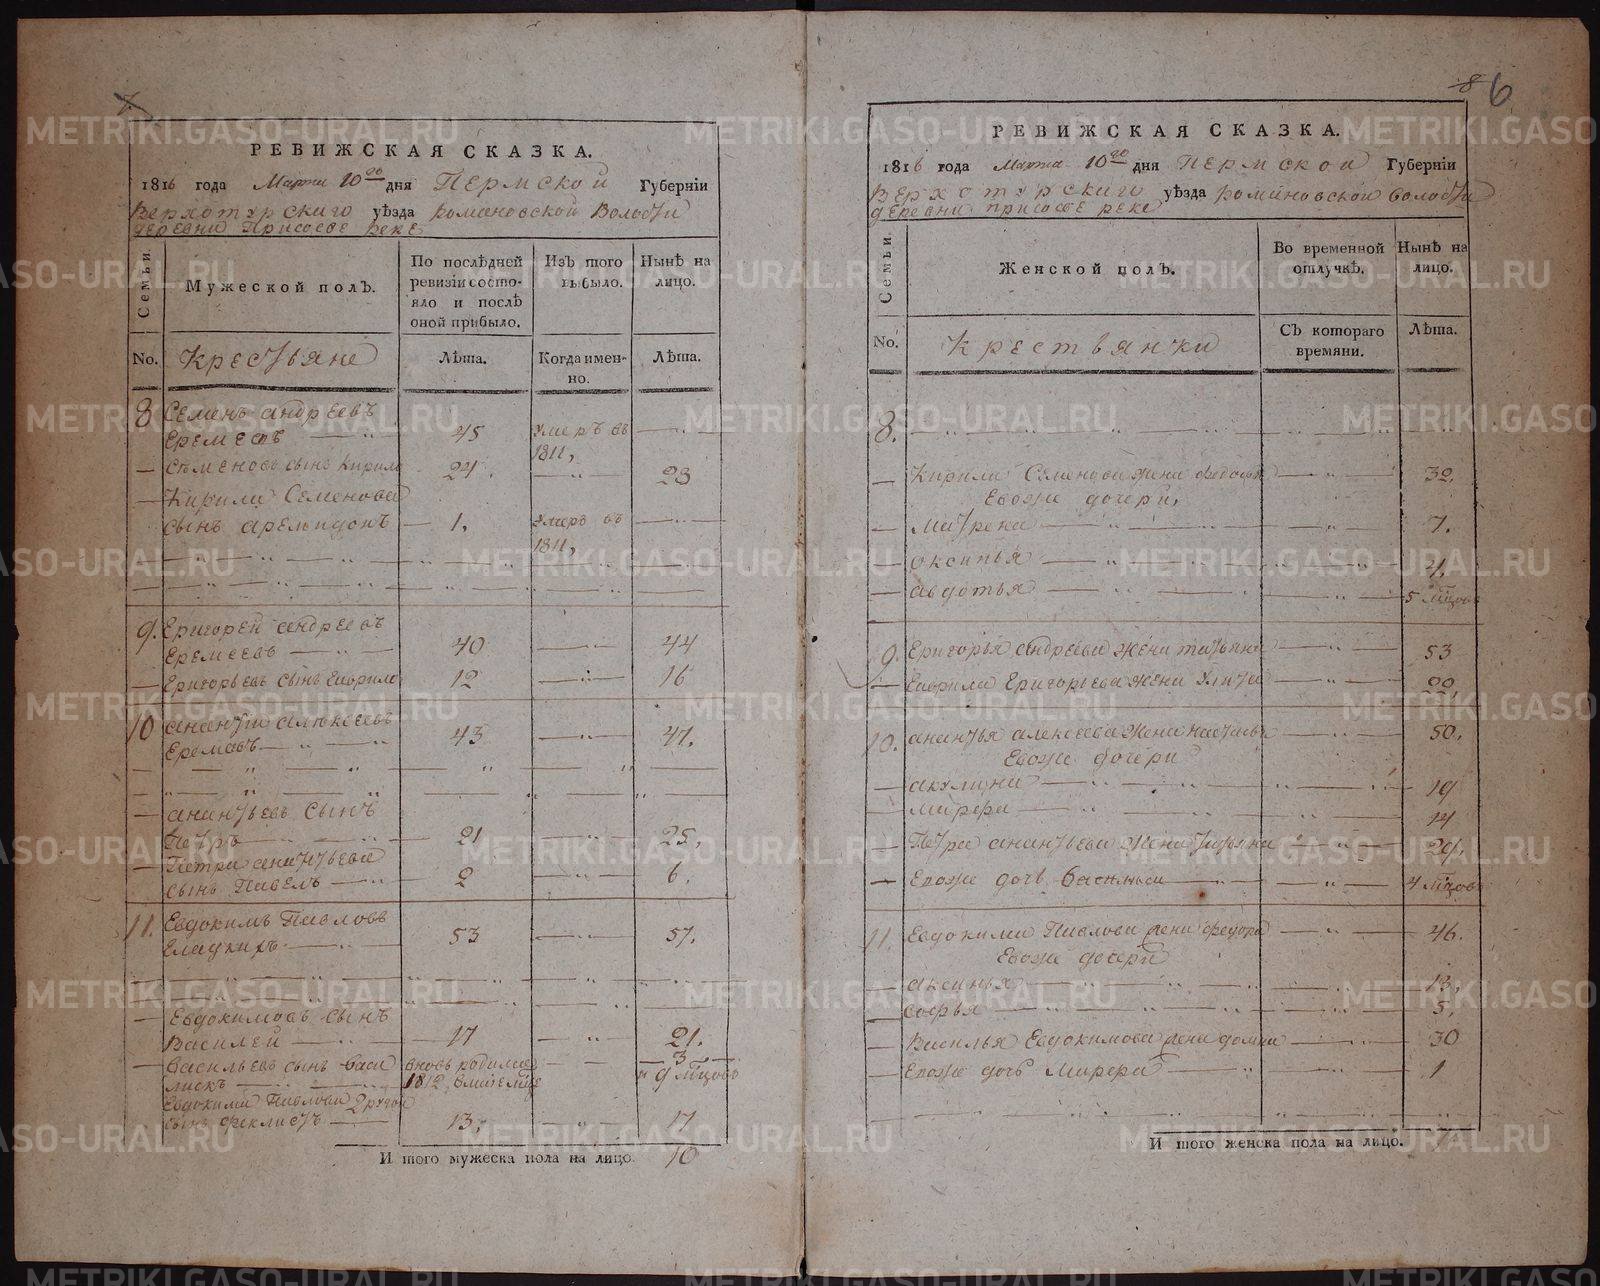 РЕВИЖСКАЯ СКАЗКА.
1816 года Марта 10го дня Пермской Губерніи
Верхотурскаго уѣзда Романовской Волости
деревни При сосве реке
Семьи.
Мужеской полъ.
По послѣдней ревизіи состояло и послѣ оной прибыло.
Изъ того выбыло.
Нынѣ на лицо.
No. Крестьяне Лѣта. Когда именно. Лѣта.
8 Семенъ андреевъ
Еремеевъ 45 умеръ въ 1811,
Семеновъ сынъ Кирило 24. 28
Кирила Семенова
сынъ 1, умеръ въ 1811,
9. Григорей андреевъ
Еремеевъ 40 44
Григорьевъ сынъ Гаврило 12 16
10 ананья алексеевъ
43 47.
ананьевъ сынъ
Петръ 21 25,
Петра ананьева
сынъ Павелъ 2 6.
11. Евдокимъ Павловъ
53 57.
Евдокимовъ сынъ
Василей 17 21.
Васильевъ сынъ Васи вновь родился 3
лискъ 1812 и 9 мцовъ
Евдокима Павлова 2 другой
сынъ феклистъ 13, 17
И того мужеска пола на лицо. 10
8 6
РЕВИЖСКАЯ СКАЗКА.
1816 года Марта 10го дня Пермской Губерніи
Верхотурскаго уѣзда Романовской волости
деревни при сосве реке
Семьи.
Женской полъ.
Во временной отлучкѣ.
Нынѣ на лицо.
No. Крестьянки Съ котораго времяни. Лѣта.
8.
Кирила Семенова жена федосья 32.
Евоже дочери,
Матрена 7.
оксинья 4.
авдотья 5 мцовъ
9. Григорья андреева жена татьяна 53
Гаврила Григорьева жена улита 22,
10. ананья алексеева жена настасья 50,
Евоже дочери
акулина 19
Марфа 14
Петра ананьева жена татьяна 29,
Евоже дочь Василиса 4 мцовъ
11. Евдокима Павлова жена федора 46.
Евоже дочери
аксинья 13,
Софья 5,
Василья Евдокимова жена домна 30
Евоже дочь Марфа 1
И того женска пола на лицо.
METRIKI.GASO-URAL.RU